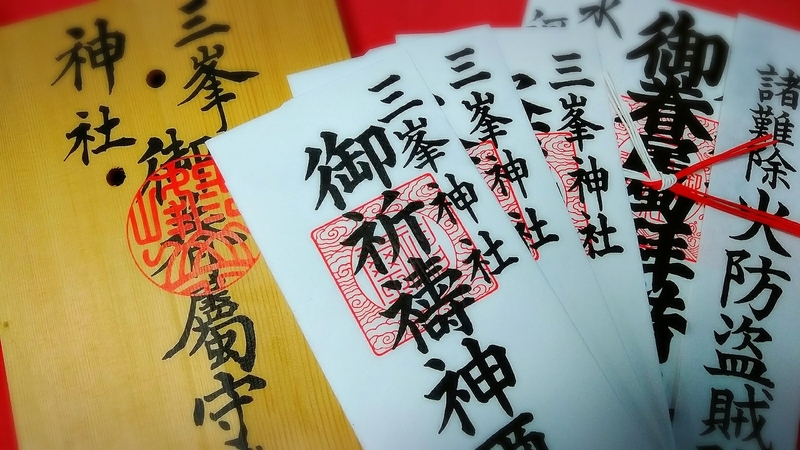 三峯
神社
御眷属守
三峯神社
御祈禱神
三峯神社
三峯神社
御眷属
諸難除
火防盗賊